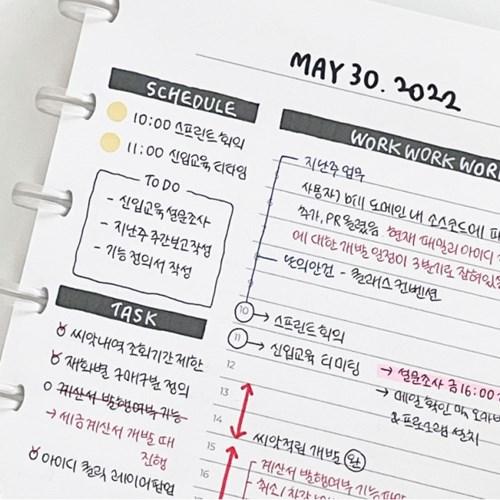 MAY 30. 2022
SCHEDULE
10:00 스프린트 회의
11:00 신입교육 티타임
TO DO
- 신입교육 설문조사
- 지난주 주간보고 작성
- 기능 정의서 작성
TASK
씨앗내역 조회기간 제한
재화별 구매구분 정의
계산서 발행여부 기능
→ 세금계산서 개발 때
진행
아이디 클릭 레이어팝업
WORK WORK WOR
지난주 업무
사용자) bill 도메인 내 소스코드에
추가, PR 올렸음 현재 패밀리 아이디
에 대한 개발 일정이 3분기로 잡혀있
논의안건 - 클래스 컨벤션
10 → 스프린트 회의
11 → 신입교육 티미팅
12
→ 설문조사 금 16:00
13
→ 메일 확인
14
& 프로그램 설치
15
씨앗적립 개발 완
계산서 발행여부
16